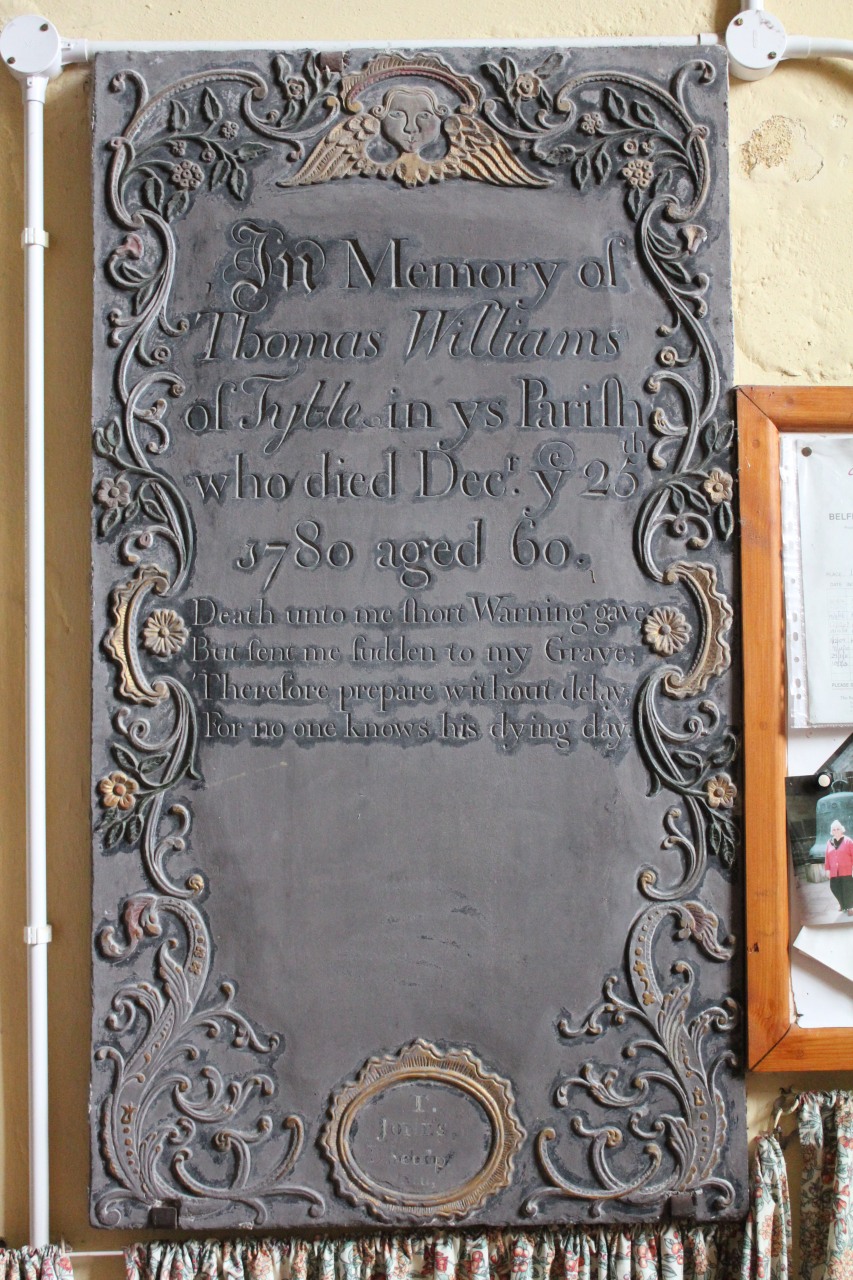 In Memory of
Thomas Williams
of Tyble in ys Pariſh
who died Decr. ye 25th
1780 aged 60.
Death unto me ſhort Warning gave
But ſent me ſudden to my Grave;
Therefore prepare without delay,
For no one knows his dying day.
T.
Jones
Sculp
BELF